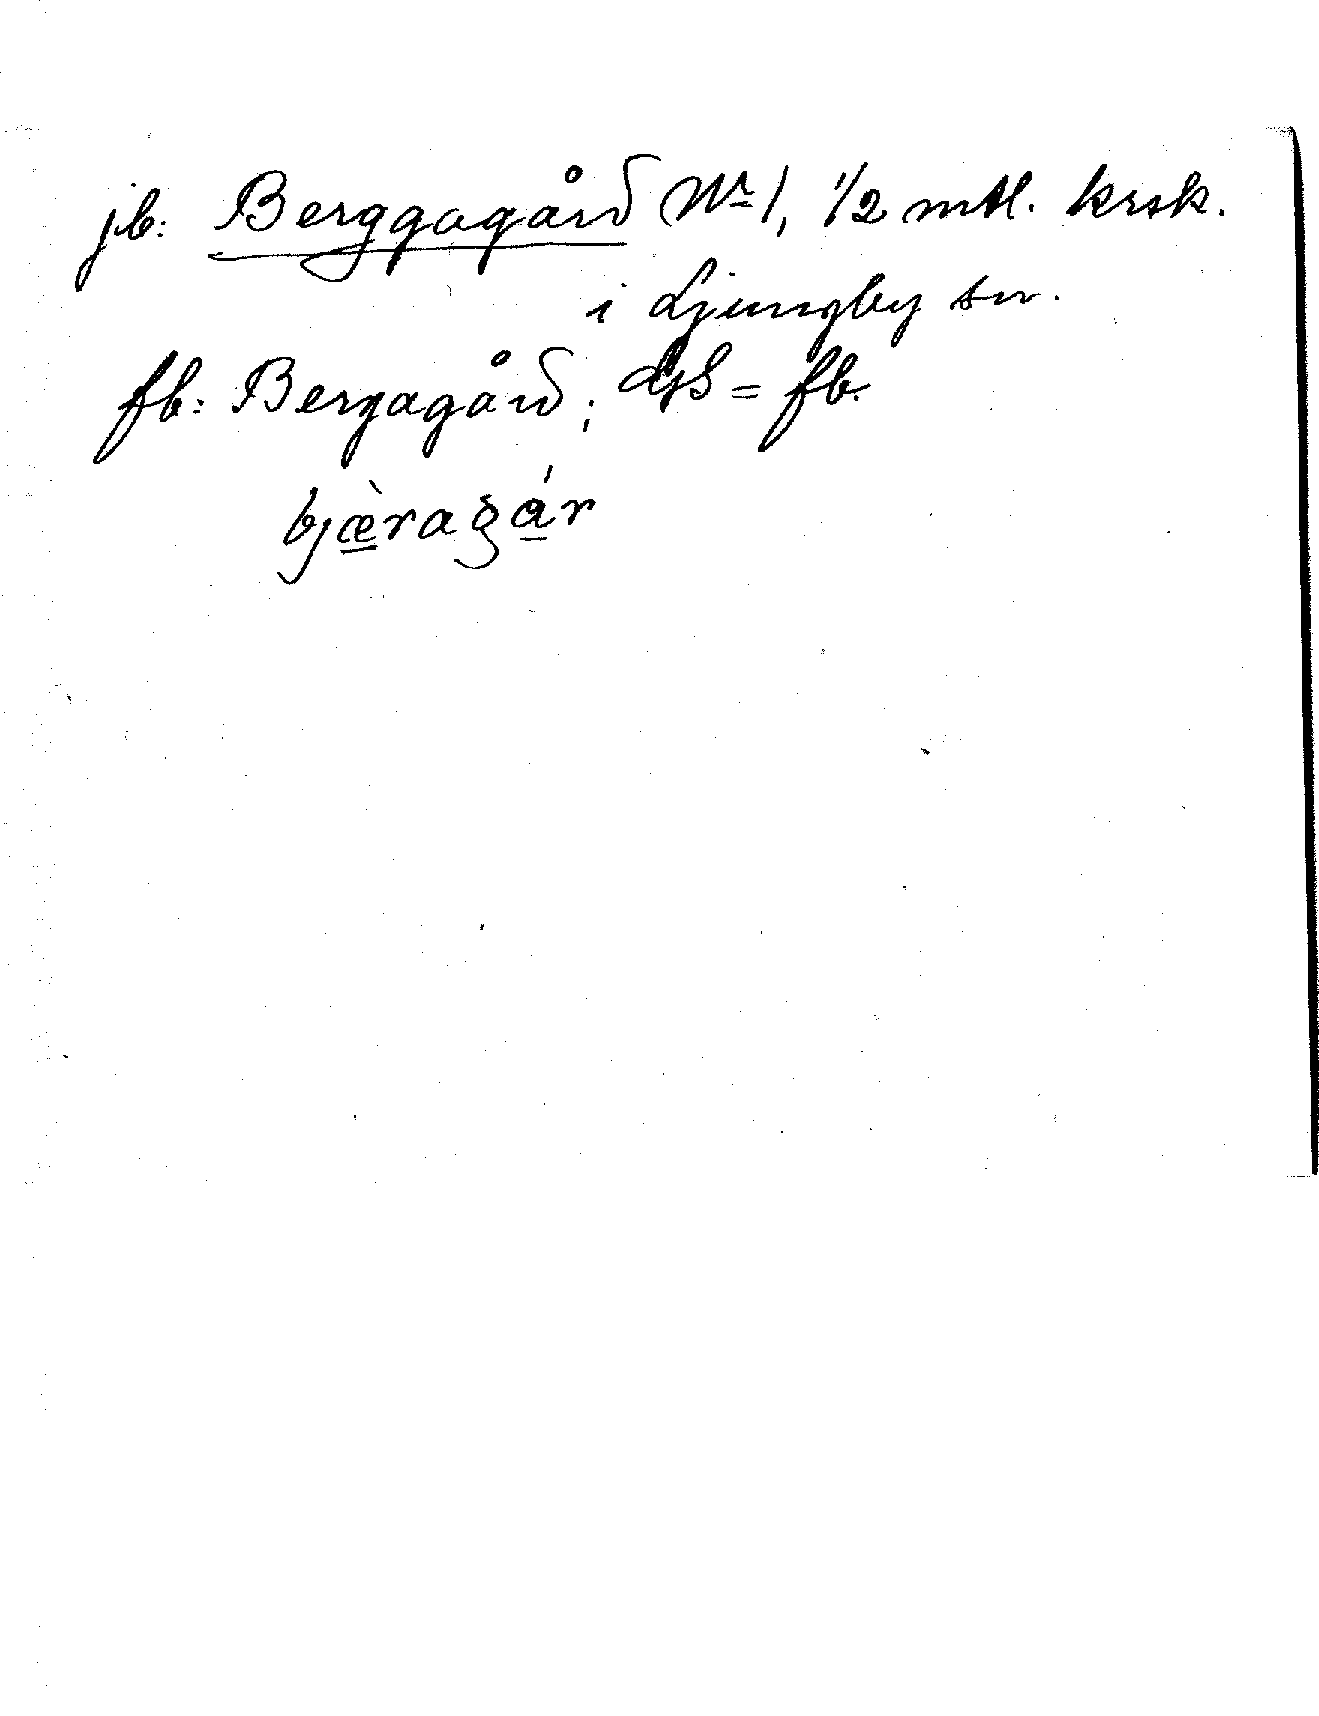 jb: Berggagård Nr 1, 1/2 mtl. krsk.
i Ljungby sn.
fb: Bergagård; GS = fb.
bjæ̀ragár